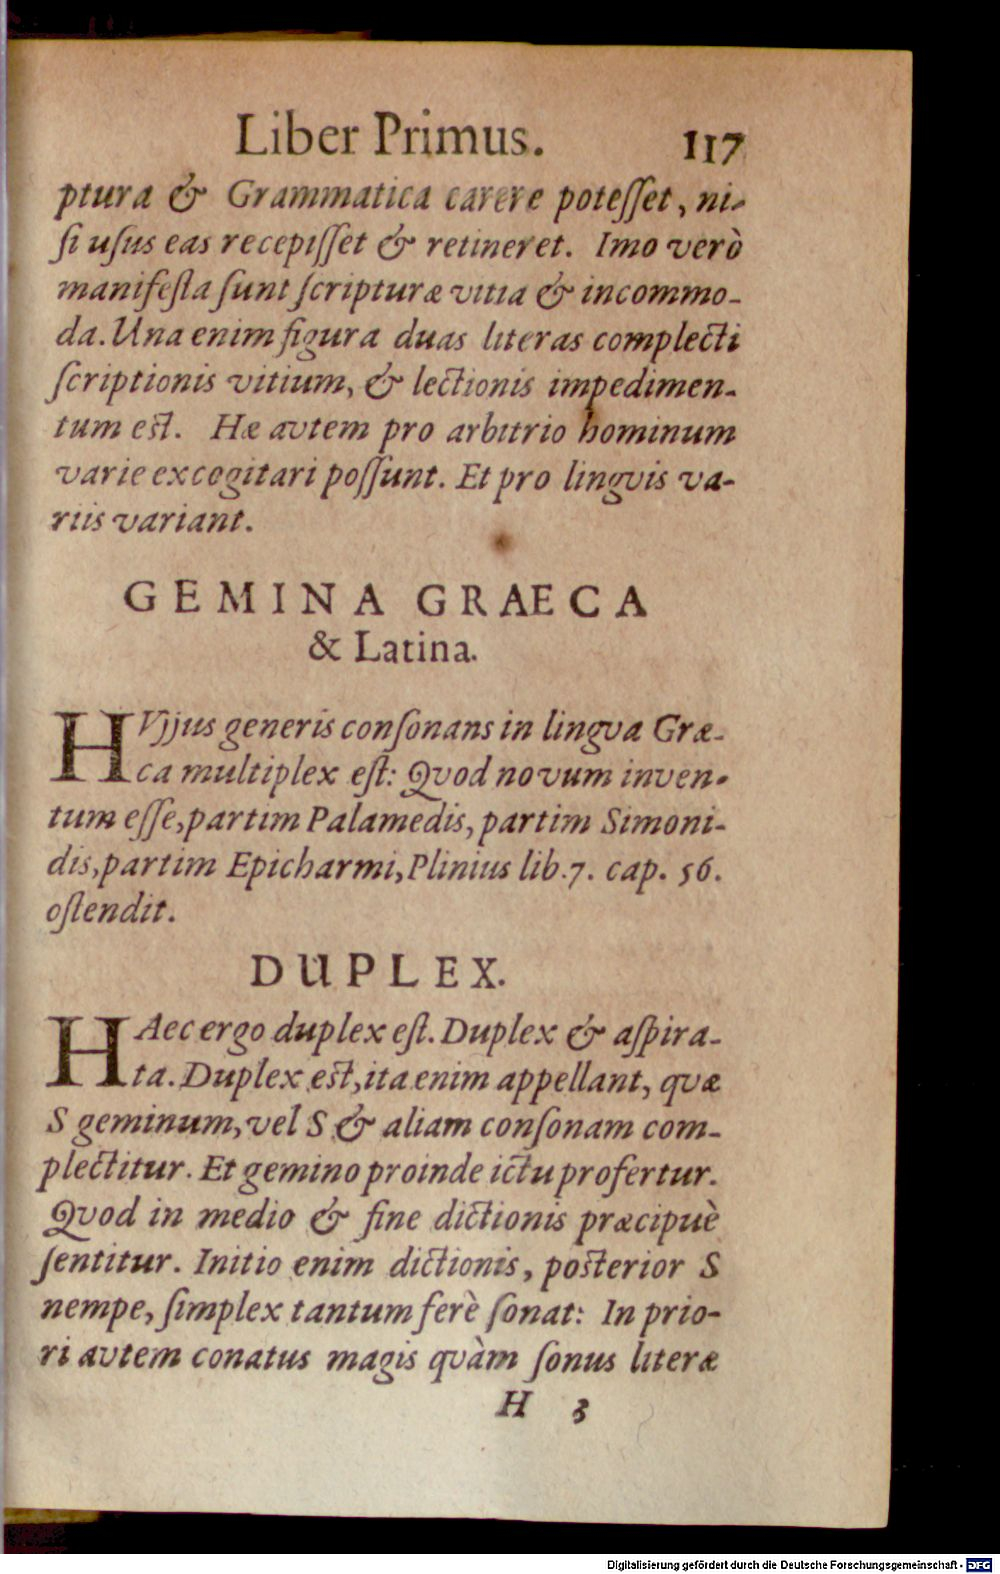 Liber Primus. 117
ptura & Grammatica carere potesſet, ni-
ſi uſus eas recepiſſet & retineret. Imo verò
manifeſta ſunt ſcripturæ vitia & incommo-
da. Una enim figura duas literas complecti
ſcriptionis vitium, & lectionis impedimen-
tum est. Hæ avtem pro arbitrio hominum
varie excogitari poſſunt. Et pro lingvis va-
riis variant.
GEMINA GRAECA
& Latina.
HVjjus generis conſonans in lingva Græ-
ca multiplex eſt: Qvod novum inven-
tum eſſe, partim Palamedis, partim Simoni-
dis, partim Epicharmi, Plinius lib. 7. cap. 56.
oſtendit.
DUPLEX.
HAec ergo duplex eſt. Duplex & aſpira-
ta. Duplex est, ita enim appellant, qvæ
S geminum, vel S & aliam conſonam com-
plectitur. Et gemino proinde ictu profertur.
Qvod in medio & fine dictionis præcipuè
ſentitur. Initio enim dictionis, posterior S
nempe, ſimplex tantum ferè ſonat: In prio-
ri avtem conatus magis qvàm ſonus literæ
H 3
Digitalisierung gefördert durch die Deutsche Forschungsgemeinschaft - DFG